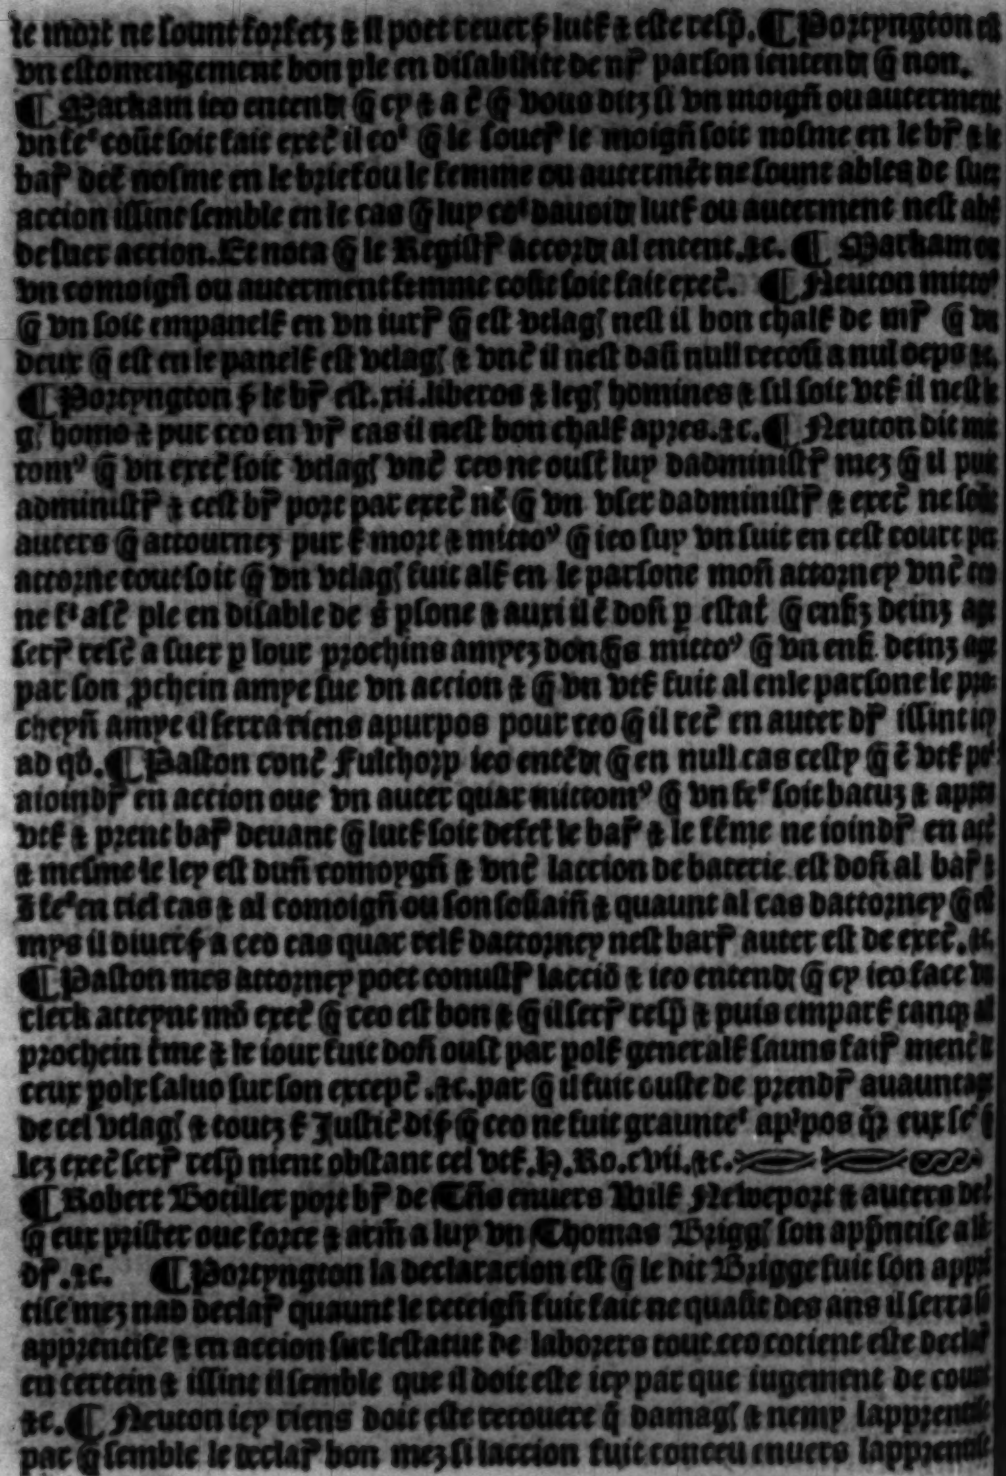 le mort ne sount forfetz & il poet reuers̃ lutł & estre resp̃. ¶ Portyngton
vn estomengement bon ple en disabilite de nr̃ parson ientendr̃ q̃ non.
¶ Markam ieo entendr̃ q̃ cy & a c̃ q̃ vous ditz si vn moigñ ou auterment
vn fe͛ cou͂t soit fait exec̃ il co͛ q̃ le souer̃ le moigñ soit nosme en le br̃ &
bar̃ det̃ nosme en le brief ou le femme ou autermẽt ne sount ables de suer
accion issint semble en le cas q̃ luy co͛ dauoidr̃ lutł ou auterment nest
de suer accion. Et nota q̃ le Registr̃ accordr̃ al entent. &c. ¶ Markam
vn comoigñ ou auterment femme cou͂t soit fait exec̃. ¶ Neuton mitto͛
q̃ vn soit empanelł en vn iur̃ q̃ est vtlagꝭ nest il bon chalł de mr̃ q̃
deux q̃ est en le panelł est vtlagꝭ & vnc̃ il nest dañ null recorñ a nul oeps &c
¶ Portyngton p̃ le br̃ est. xii. liberos & legꝭ homines & sil soit vtł il nest
gꝭ homo & pur ceo en vr̃ cas il nest bon chalł apres. &c. ¶ Neuton dit
tomꝰ q̃ vn exec̃ soit vtlagꝭ vnc̃ ceo ne oust luy dadministr̃ mez q̃ il
administr̃ & cest br̃ port par exec̃ nc̃ q̃ vn vser dadministr̃ & exec̃ ne
auters q̃ attournez pur ł mort & mittoꝰ q̃ ieo suy vn suit en cest court
attorne tout soit q̃ vn vtlagꝭ fuit alł en le parsone moñ attorney vnc̃
ne f͛ asc̃ ple en disable de s̃ psone & auxi il c̃ doñ p estat̃ q̃ enfz deinz age
serr̃ resc̃ a suer p lour prochins amyez donq̃s mittoꝰ q̃ vn enf̃ deinz age
par son pchein amye sue vn accion & q̃ vn vtł fuit al enle parsone le
cheyñ amye il serra riens apurpos pour ceo q̃ il rec̃ en auter dr̃ issint
ad qd̃. ¶ Paston conc̃ Fulthorp ieo entẽdr̃ q̃ en null cas cesty q̃ c̃ vtł
aioindr̃ en accion oue vn auter quar mittomꝰ q̃ vn fe͛ soit batuz & apres
vtł & prent bar̃ deuant q̃ lutł soit defet le bar̃ & le fẽme ne ioindr̃ en
& mesme le ley est dum̃ comoygñ & vnc̃ laccion de baterie est doñ al bar̃
s̃ fe͛ en tiel cas & al comoigñ ou son souaiñ & quaunt al cas dattorney q̃
mys il diuers̃ a ceo cas quar relł dattorney nest barr̃ auter est de exec̃. &c.
¶ Paston mes attorney poet conustr̃ lacciõ & ieo entendr̃ q̃ cy ieo face
clerk atteynt mõ exec̃ q̃ ceo est bon & q̃ il serr̃ resp̃ & puis emparł tanq̃
prochein tm̃e & le iour fuit doñ oust par polł generalł sauns fair̃
ceux polx saluo sur son except̃. &c. par q̃ il fuit ouste de prendr̃ auauntage
de cel vtlagꝭ & toutz ł Justic̃ dis̃ q̃ ceo ne fuit graunte͛ ap'pos
lez exec̃ serr̃ resp̃ nient obstant cel vtł. H. Ro. cvii. &c.
¶ Robert Botiller port br̃ de Tñs enuers Wilł Neweport & auters
q̃ eux prister oue force & arm̃ a luy vn Thomas Briggꝭ son app̃ntise
dr̃. &c. ¶ Portyngton la declaracion est q̃ le dit Brigge fuit son
tise mez nad declar̃ quaunt le reteigñ fuit fait ne quasit des ans il serra
apprentise & en accion sur lestatut de laborers tout ceo cotient estre
en certein & issint il semble que il doit estre icy par que iugement de court
&c. ¶ Neuton icy riens doit estre recouere q̃ damagꝭ & nemy lapprentise
par q̃ semble le declar̃ bon mez si laccion fuit conceu enuers lapprentise